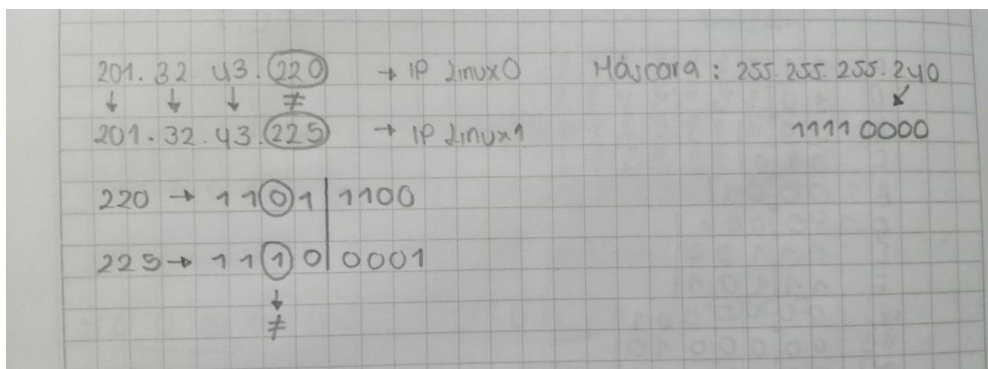 201.32.43.220 → IP Linux0 Máscara: 255.255.255.240
↓ ↓ ↓ ≠ ↙
201.32.43.225 → IP Linux1 11110000
220 → 1101|1100
225 → 1110|0001
↓
≠